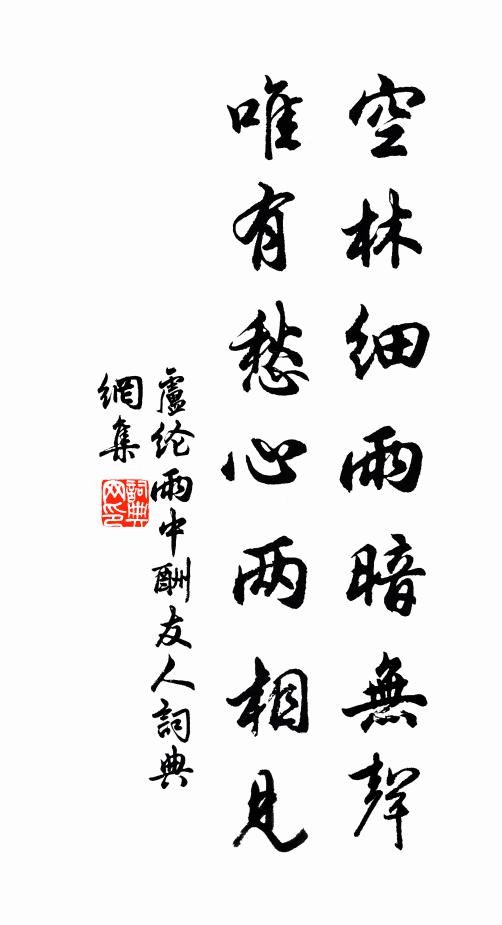 空林細雨暗無聲
唯有愁心两相見
盧纶雨中酬友人詞典
網集
詞典
网印